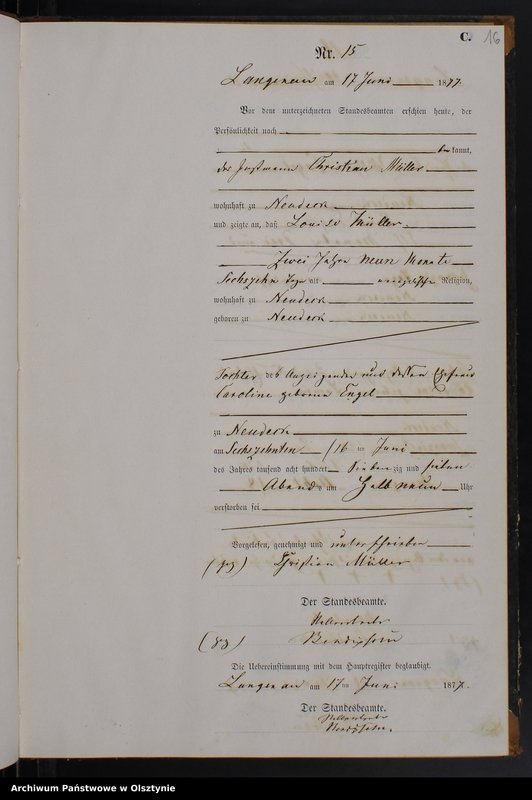 C. 16
Nr. 15
Langenau am 17 Juni 1877.
Vor dem unterzeichneten Standesbeamten erschien heute, der
Persönlichkeit nach
bekannt,
der Christian Müller
wohnhaft zu Neudeck
und zeigte an, daß Louise Müller
Zwei Jahre neun Monate
Sechszehn Tage alt evangelischer Religion,
wohnhaft zu Neudeck
geboren zu Neudeck
Tochter des Anzeigenden und dessen Ehefrau
Caroline geborene Engel
zu Neudeck
am Sechszehnten /16 ten Juni
des Jahres tausend acht hundert siebenzig und sieben
Abends um Halb neun Uhr
verstorben sei
Vorgelesen, genehmigt und unterschrieben
(gz) Christian Müller
Der Standesbeamte.
(gz)
Die Uebereinstimmung mit dem Hauptregister beglaubigt.
Langenau am 17 ten Juni 1877.
Der Standesbeamte.
Archiwum Państwowe w Olsztynie